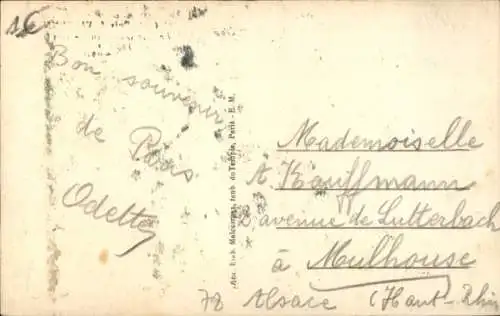 Bon souvenir
de Paris
Odette
Mademoiselle
A Kauffmann
2 avenue de Lutterbach
à Mulhouse
Alsace (Haut-Rhin
faub. du Temple, Paris - E. M.